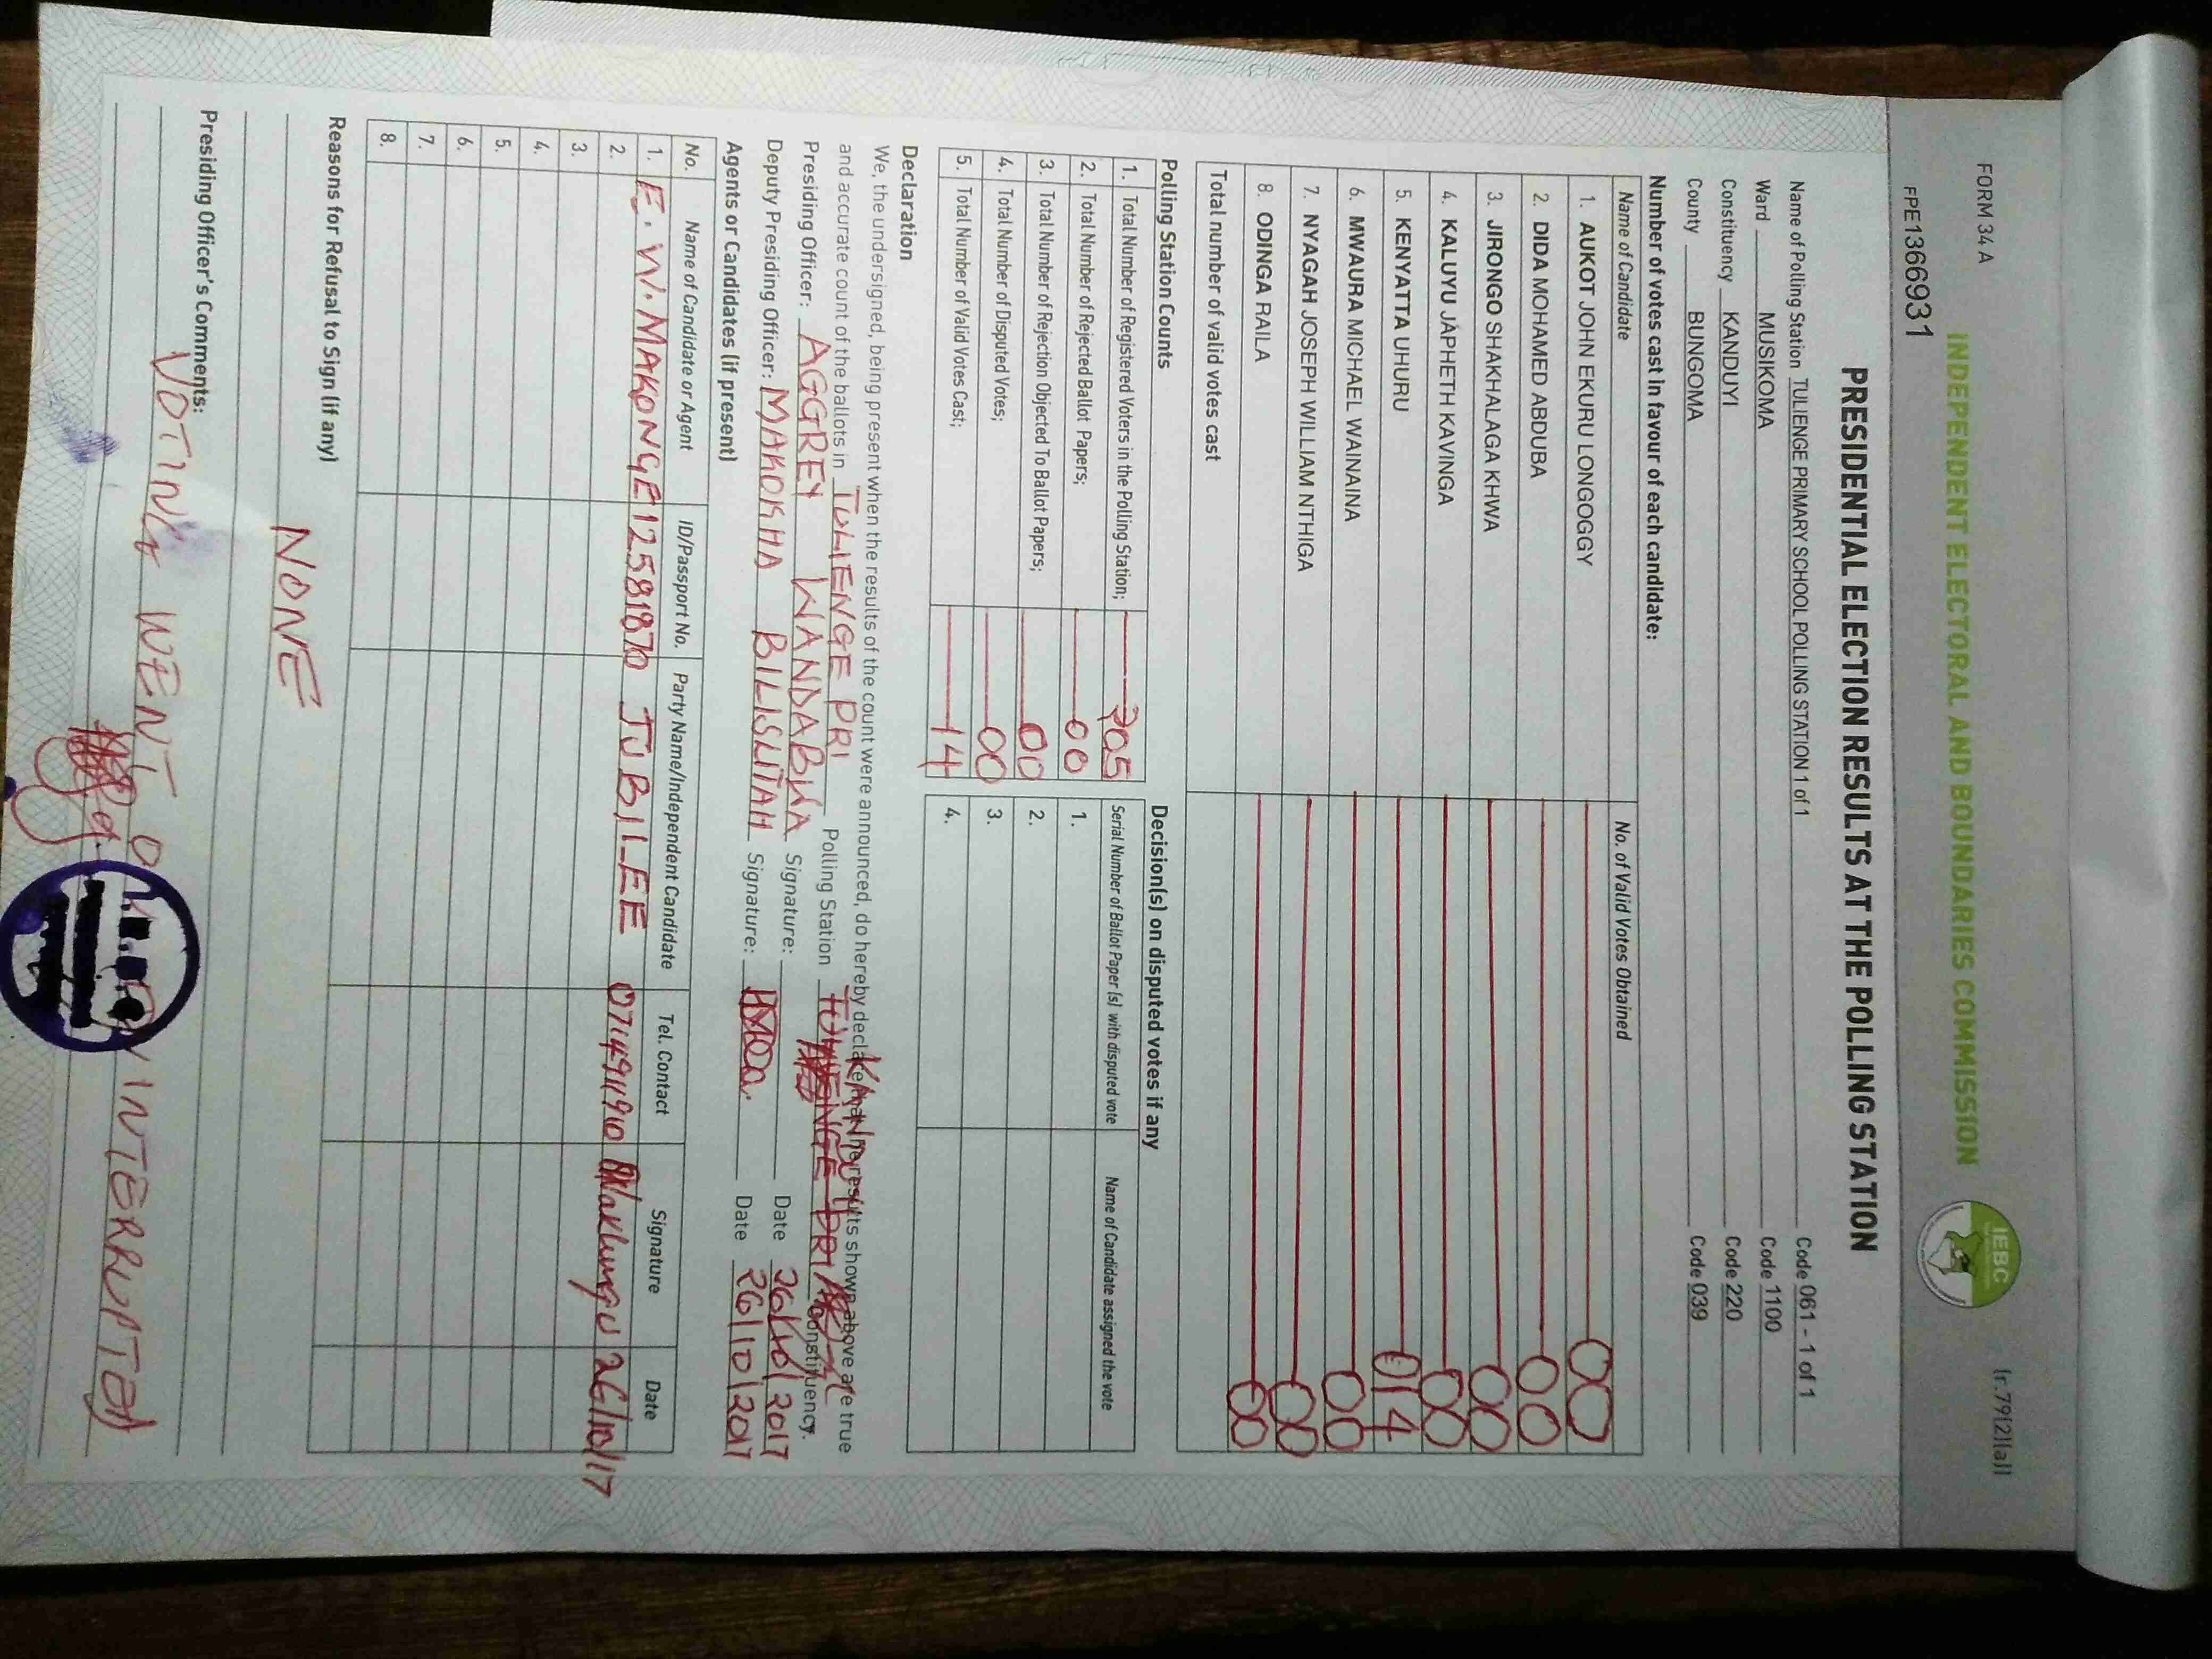 FORM 34 A
(r.79(2)(a))
INDEPENDENT ELECTORAL AND BOUNDARIES COMMISSION
IEBC
FPE1366931
PRESIDENTIAL ELECTION RESULTS AT THE POLLING STATION
Name of Polling Station TULIENGE PRIMARY SCHOOL POLLING STATION 1 of 1 Code 061 - 1 of 1
Ward MUSIKOMA Code 1100
Constituency KANDUYI Code 220
County BUNGOMA Code 039
Number of votes cast in favour of each candidate:
Name of Candidate No. of Valid Votes Obtained
1. AUKOT JOHN EKURU LONGOGGY 00
2. DIDA MOHAMED ABDUBA 00
3. JIRONGO SHAKHALAGA KHWA 00
4. KALUYU JAPHETH KAVINGA 00
5. KENYATTA UHURU 014
6. MWAURA MICHAEL WAINAINA 00
7. NYAGAH JOSEPH WILLIAM NTHIGA 00
8. ODINGA RAILA 00
Total number of valid votes cast
Polling Station Counts
1. Total Number of Registered Voters in the Polling Station; 705
2. Total Number of Rejected Ballot Papers; 00
3. Total Number of Rejection Objected To Ballot Papers; 00
4. Total Number of Disputed Votes; 00
5. Total Number of Valid Votes Cast; 14
Decision(s) on disputed votes if any
Serial Number of Ballot Paper (s) with disputed vote Name of Candidate assigned the vote
1.
2.
3.
4.
Declaration
We, the undersigned, being present when the results of the count were announced, do hereby declare that the results shown above are true
KANDUYI
and accurate count of the ballots in TULIENGE PRI Polling Station TULIENGE PRI Constituency.
Presiding Officer: AGGREY WANDABWA Signature: Date 26/10/2017
Deputy Presiding Officer: MAKOKHA BILISITAH Signature: Date 26/10/2017
Agents or Candidates (if present)
No. Name of Candidate or Agent ID/Passport No. Party Name/Independent Candidate Tel. Contact Signature Date
1. E. W. MAKONGE 12581870 JUBILEE 0714911910 26/10/17
2.
3.
4.
5.
6.
7.
8.
Reasons for Refusal to Sign (if any)
NONE
Presiding Officer's Comments:
VOTING WENT ON INTERRUPTED